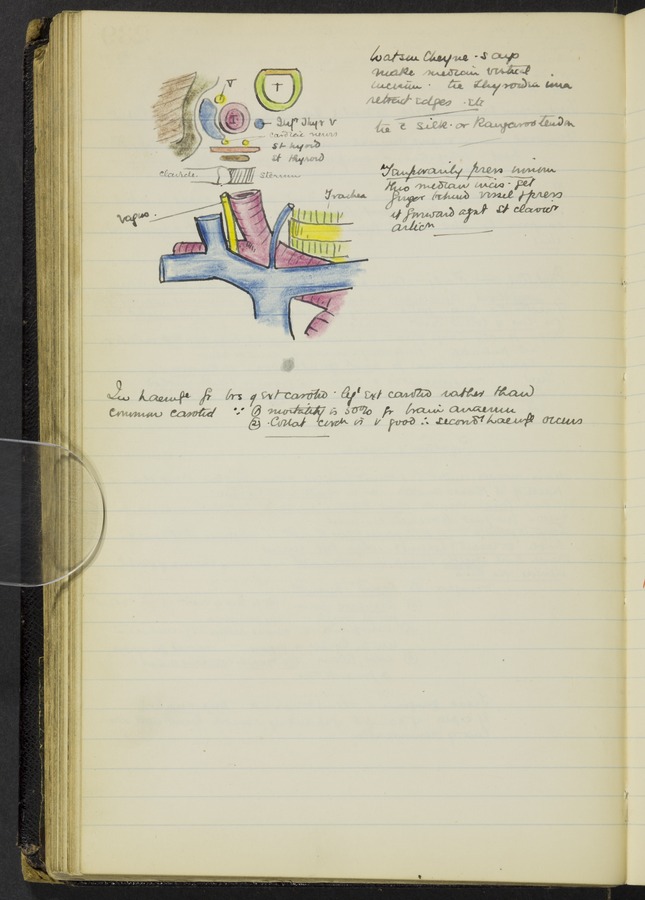 Watson Cheyne - says
make median vertical
incision. tie thyroidea ima
retract edges. etc
tie c silk. or Kangaroo tendon
V
T
Inf r Thyr V
cardiac nerves
St hyoid
St thyroid
clavicle.
sternum
Temporarily press innom
thro median incis. get
finger behind vessel & press
it forward agst St clavic r
articn
Trachea
vagus.
In haemge fr brs of ext carotid. lige ext carotid rather than
common carotid ∵ ① mortality is 50% fr brain anaemia
② Collat circln is v good ∴ second y haemge occurs